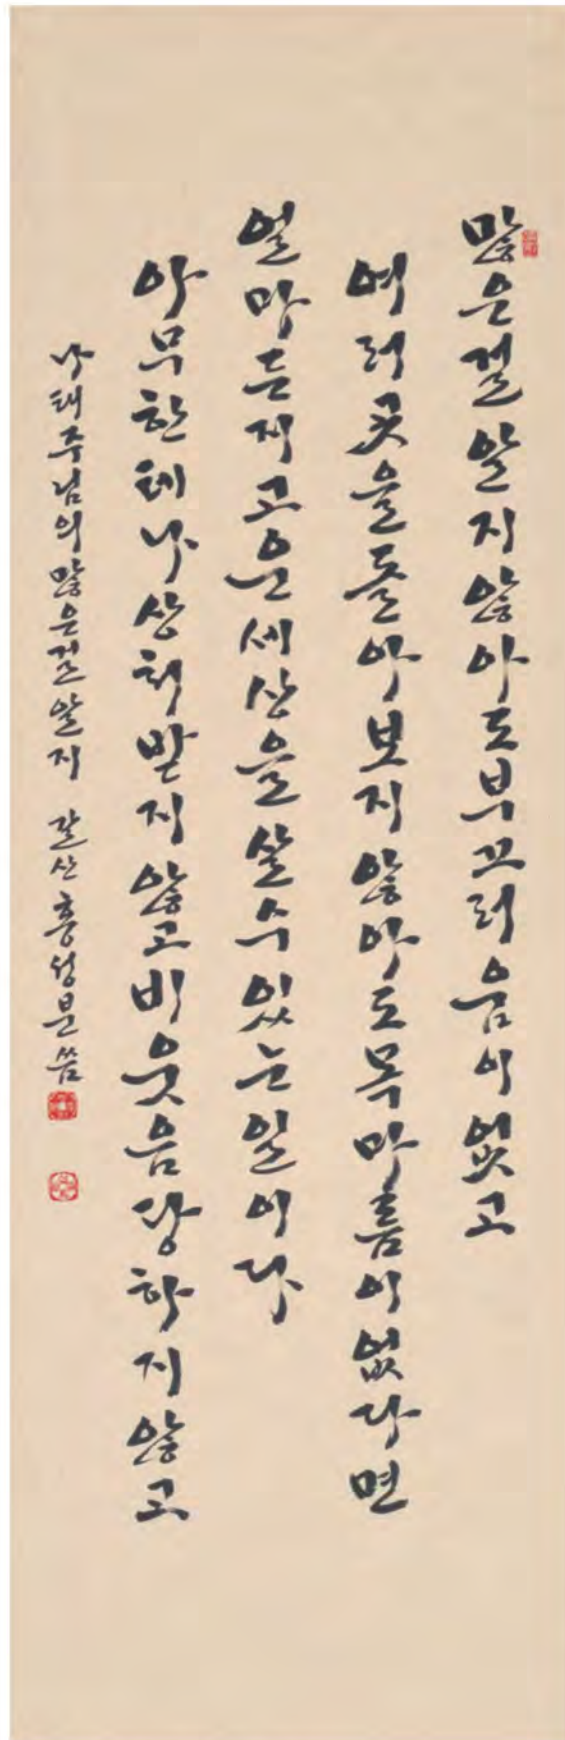 많은걸알지않아도부끄러움이없고
여러곳을돌아보지않아도목마름이없다면
얼마든지고운세상을살수있는일이다
아무한테나상처받지않고비웃음당하지않고
나태주님의많은걸알지 갈산홍성분씀